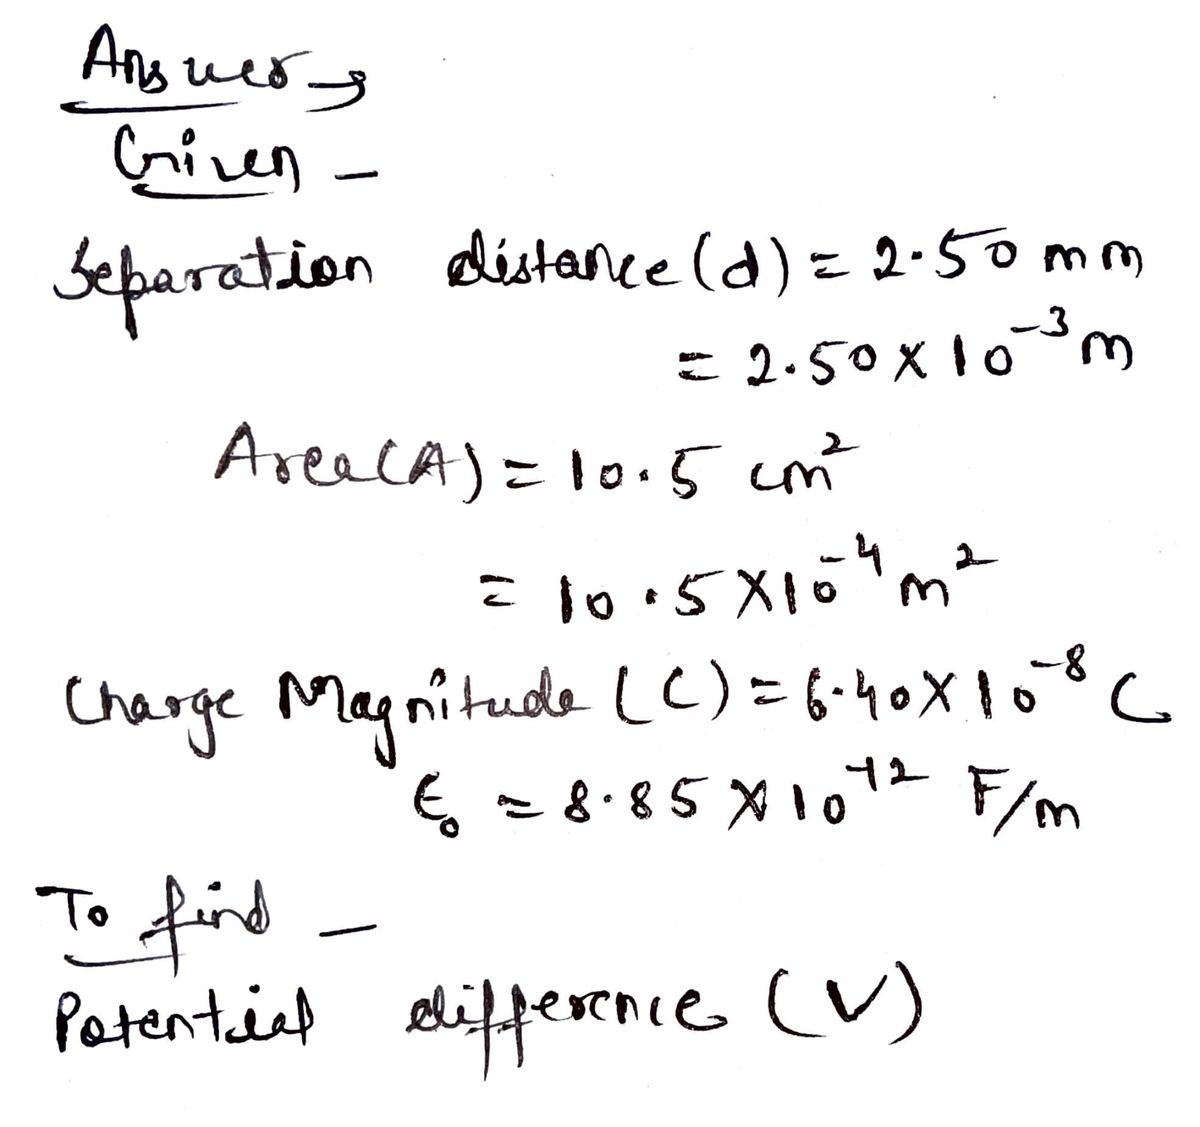 Answer →
Given -
Separation distance (d) = 2.50 mm
= 2.50 X 10⁻³ m
Area (A) = 10.5 cm²
= 10.5 X 10⁻⁴ m²
Charge Magnitude (C) = 6.40 X 10⁻⁸ C
ϵ₀ = 8.85 X 10⁻¹² F/m
To find -
Potential difference (V)